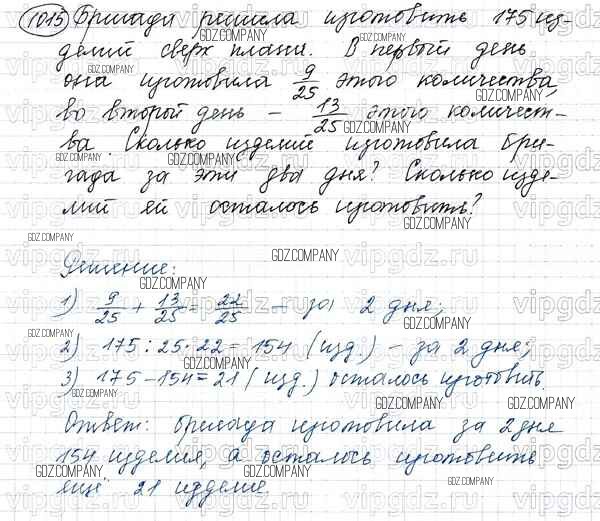 1015 Бригада решила изготовить 175 из-
делий сверх плана. В первый день
она изготовила 9/25 этого количества,
во второй день – 13/25 этого количест-
ва. Сколько изделий изготовила бри-
гада за эти два дня? Сколько изде-
лий ей осталось изготовить?
Решение:
1) 9/25 + 13/25 = 22/25 – за 2 дня;
2) 175 : 25 · 22 = 154 (изд.) – за 2 дня;
3) 175 – 154 = 21 (изд.) осталось изготовить.
Ответ: бригада изготовила за 2 дня
154 изделия, а осталось изготовить
ещё 21 изделие.
GDZ.COMPANY
vipgdz.ru